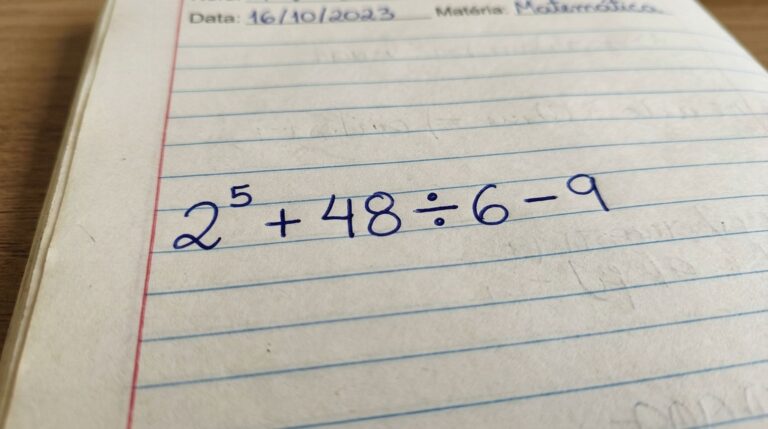 Data: 16/10/2023 Matéria: Matemática
2⁵ + 48 ÷ 6 - 9